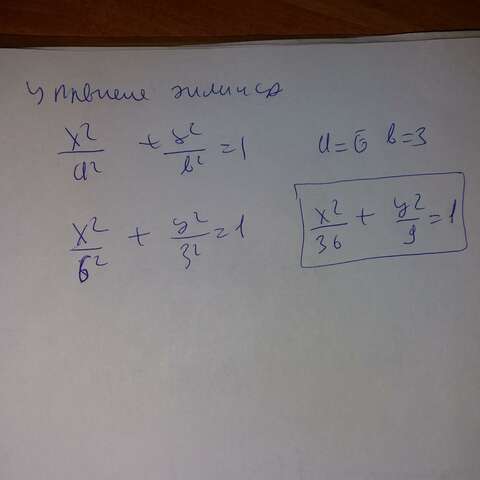 Уравнение эллипса
x²/a² + y²/b² = 1    a=6 b=3
x²/6² + y²/3² = 1    x²/36 + y²/9 = 1